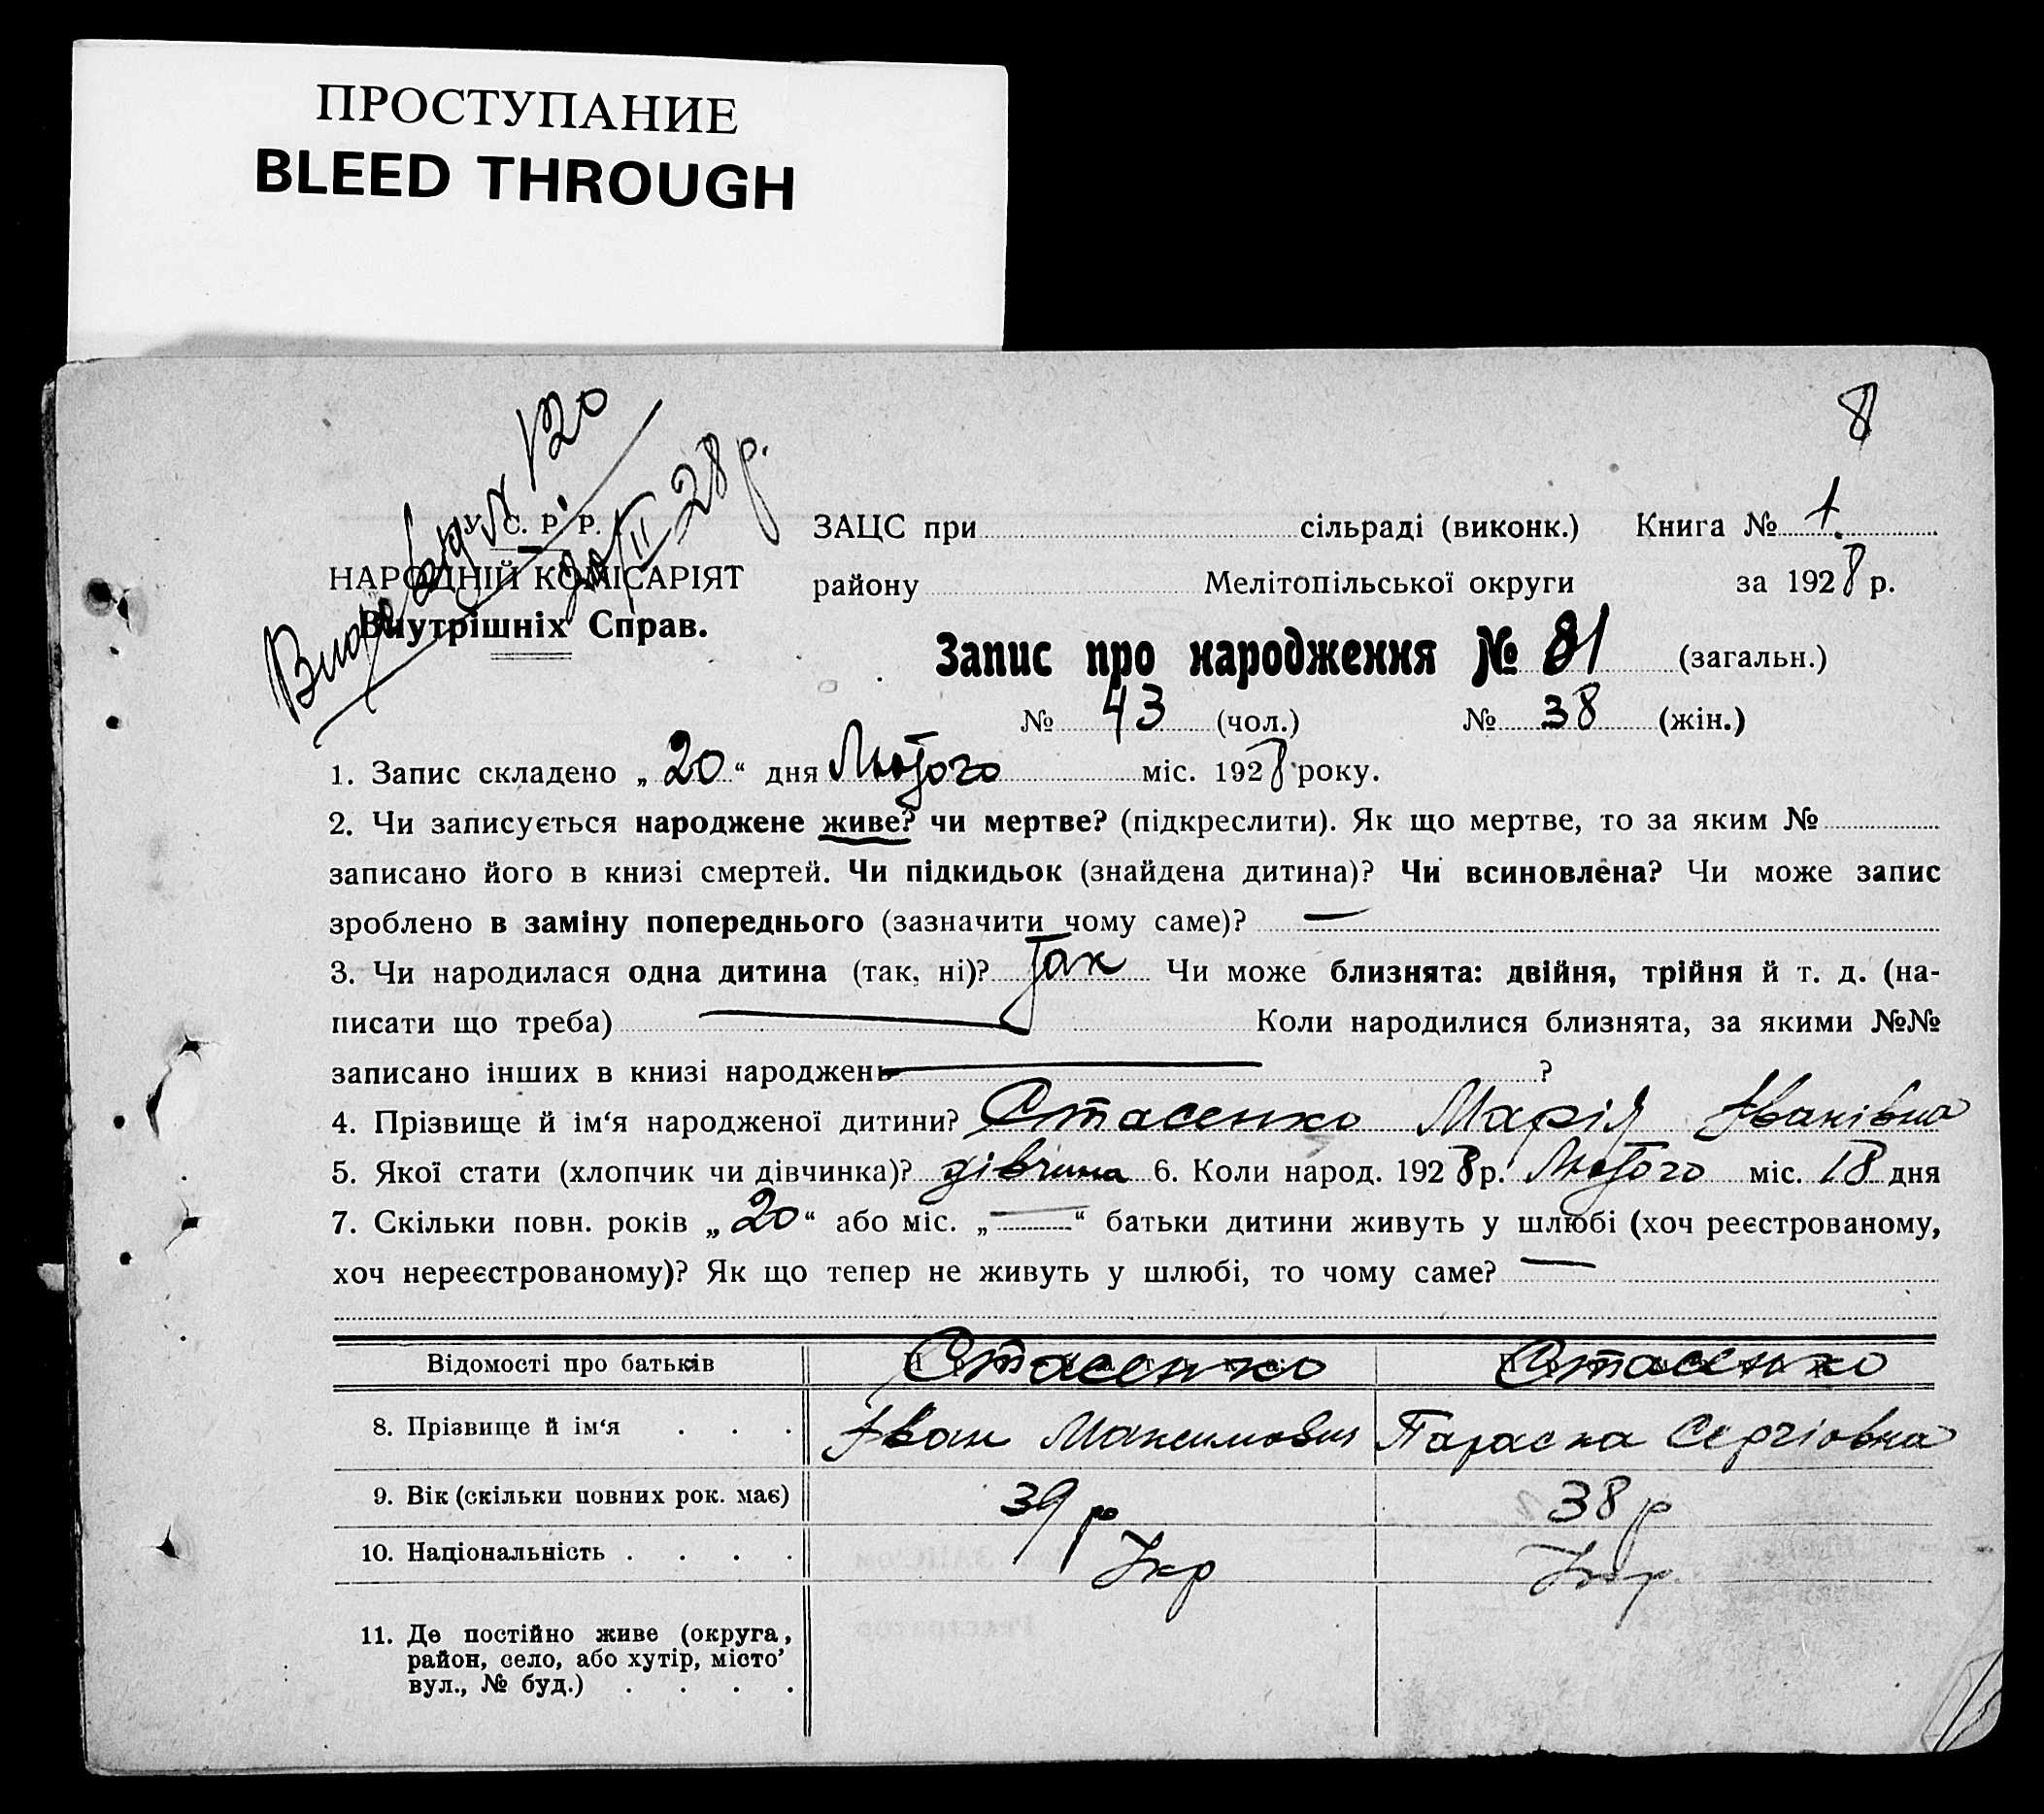 ПРОСТУПАНИЕ
BLEED THROUGH
8
Видано витяг №120
20/II 28 р.
У. С. Р. Р.
НАРОДНІЙ КОМІСАРІЯТ
Внутрішніх Справ.
ЗАЦС при сільраді (виконк.) Книга № 1
району Мелітопільської округи за 1928 р.
Запис про народження № 81 (загальн.)
№ 43 (чол.) № 38 (жін.)
1. Запис складено „20“ дня Лютого міс. 1928 року.
2. Чи записується народжене живе? чи мертве? (підкреслити). Як що мертве, то за яким №
записано його в книзі смертей. Чи підкидьок (знайдена дитина)? Чи всиновлена? Чи може запис
зроблено в заміну попереднього (зазначити чому саме)? —
3. Чи народилася одна дитина (так, ні)? Так Чи може близнята: двійня, трійня й т. д. (на-
писати що треба) — Коли народилися близнята, за якими №№
записано інших в книзі народжень — ?
4. Прізвище й ім‘я народженої дитини? Стасенко Марія Іванівна
5. Якої стати (хлопчик чи дівчинка)? дівчина 6. Коли народ. 1928 р. Лютого міс. 18 дня
7. Скільки повн. років „20“ або міс. „—“ батьки дитини живуть у шлюбі (хоч реєстрованому,
хоч нереєстрованому)? Як що тепер не живуть у шлюбі, то чому саме? —
Відомості про батьків Стасенко Стасенко
8. Прізвище й ім‘я . . . Іван Максимович Параска Сергіовна
9. Вік (скільки повних рок. має) 39 р 38 р
10. Національність . . . . Укр Укр.
11. Де постійно живе (округа,
район, село, або хутір, місто’
вул., № буд.) . . . .